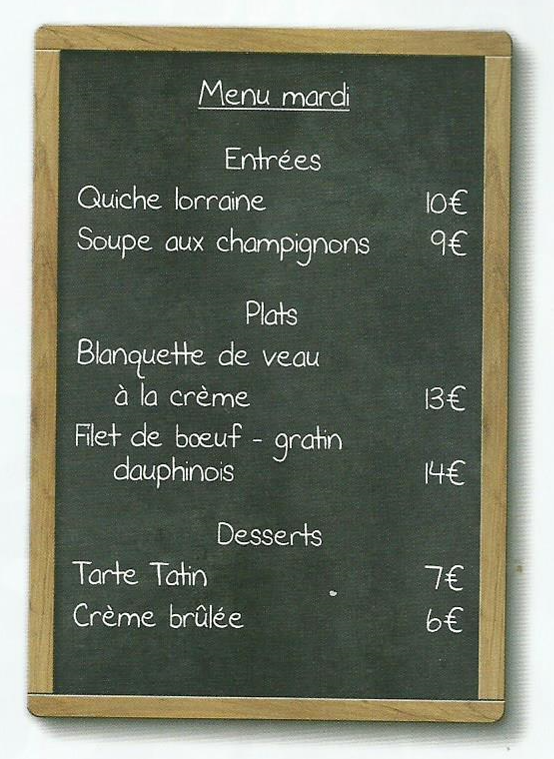 Menu mardi
Entrées
Quiche lorraine 10€
Soupe aux champignons 9€
Plats
Blanquette de veau
à la crème 13€
Filet de bœuf - gratin
dauphinois 14€
Desserts
Tarte Tatin 7€
Crème brûlée 6€